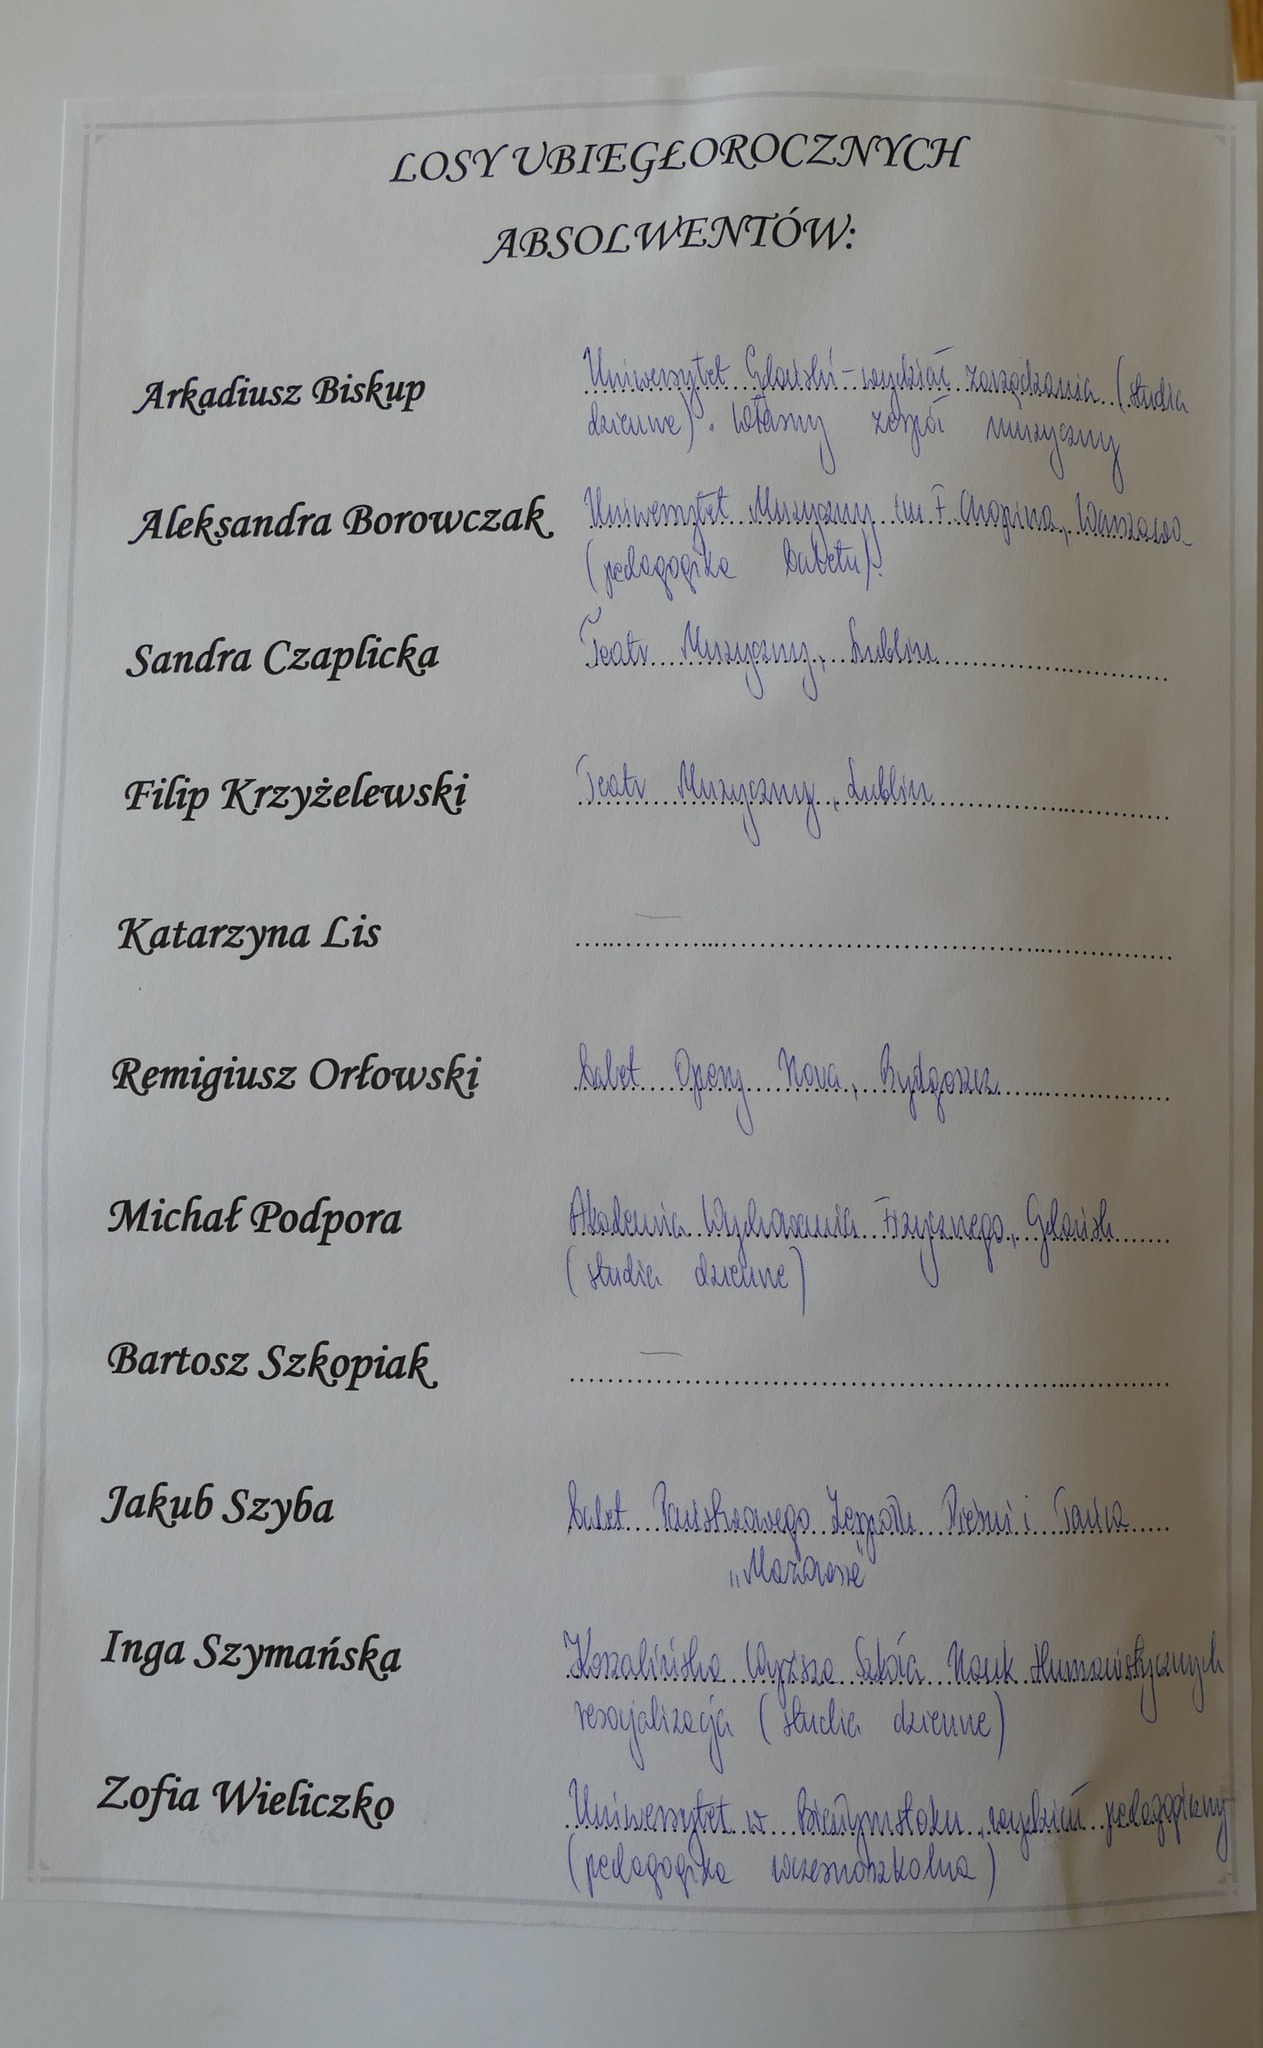 LOSY UBIEGŁOROCZNYCH
ABSOLWENTÓW:
Arkadiusz Biskup Uniwersytet Gdański - wydział zarządzania (studia
dzienne). Własny zespół muzyczny
Aleksandra Borowczak Uniwersytet Muzyczny im F. Chopina, Warszawa
(pedagogika baletu).
Sandra Czaplicka Teatr Muzyczny, Lublin
Filip Krzyżelewski Teatr Muzyczny, Lublin
Katarzyna Lis —
Remigiusz Orłowski balet Opery Nova, Bydgoszcz
Michał Podpora Akademia Wychowania Fizycznego, Gdańsk
(studia dzienne)
Bartosz Szkopiak —
Jakub Szyba balet Państwowego Zespołu Pieśni i Tańca
„Mazowsze"
Inga Szymańska Koszalińska Wyższa Szkoła Nauk Humanistycznych
resocjalizacja (studia dzienne)
Zofia Wieliczko Uniwersytet w Białymstoku, wydział pedagogiczny
(pedagogika wczesnoszkolna)